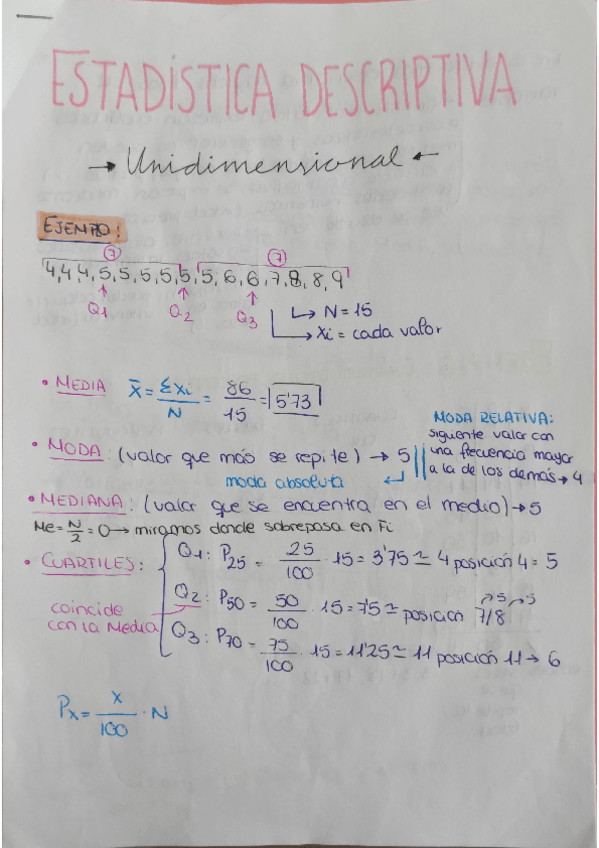 ESTADÍSTICA DESCRIPTIVA
→ Unidimensional ←
EJEMPLO:
7 7
4,4,4,5,5,5,5,5,5,6,6,7,8,8,9
Q1 Q2 Q3
↳ N = 15
↳ Xi = cada valor
• MEDIA X̄ = ΣXi/N = 86/15 = 5'73
MODA RELATIVA:
siguiente valor con
una frecuencia mayor
a la de los demás → 4
• MODA: (valor que más se repite) → 5
moda absoluta ↵
• MEDIANA: (valor que se encuentra en el medio) → 5
Me = N/2 = 0 → miramos donde sobrepasa en Fi
• CUARTILES:
Q1: P25 = 25/100 · 15 = 3'75 ≃ 4 posición 4 = 5
Q2: P50 = 50/100 · 15 = 7'5 ≃ posición 7/8 → 5 → 5
coincide
con la Media
Q3: P70 = 75/100 · 15 = 11'25 ≃ 11 posición 11 → 6
Px = X/100 · N